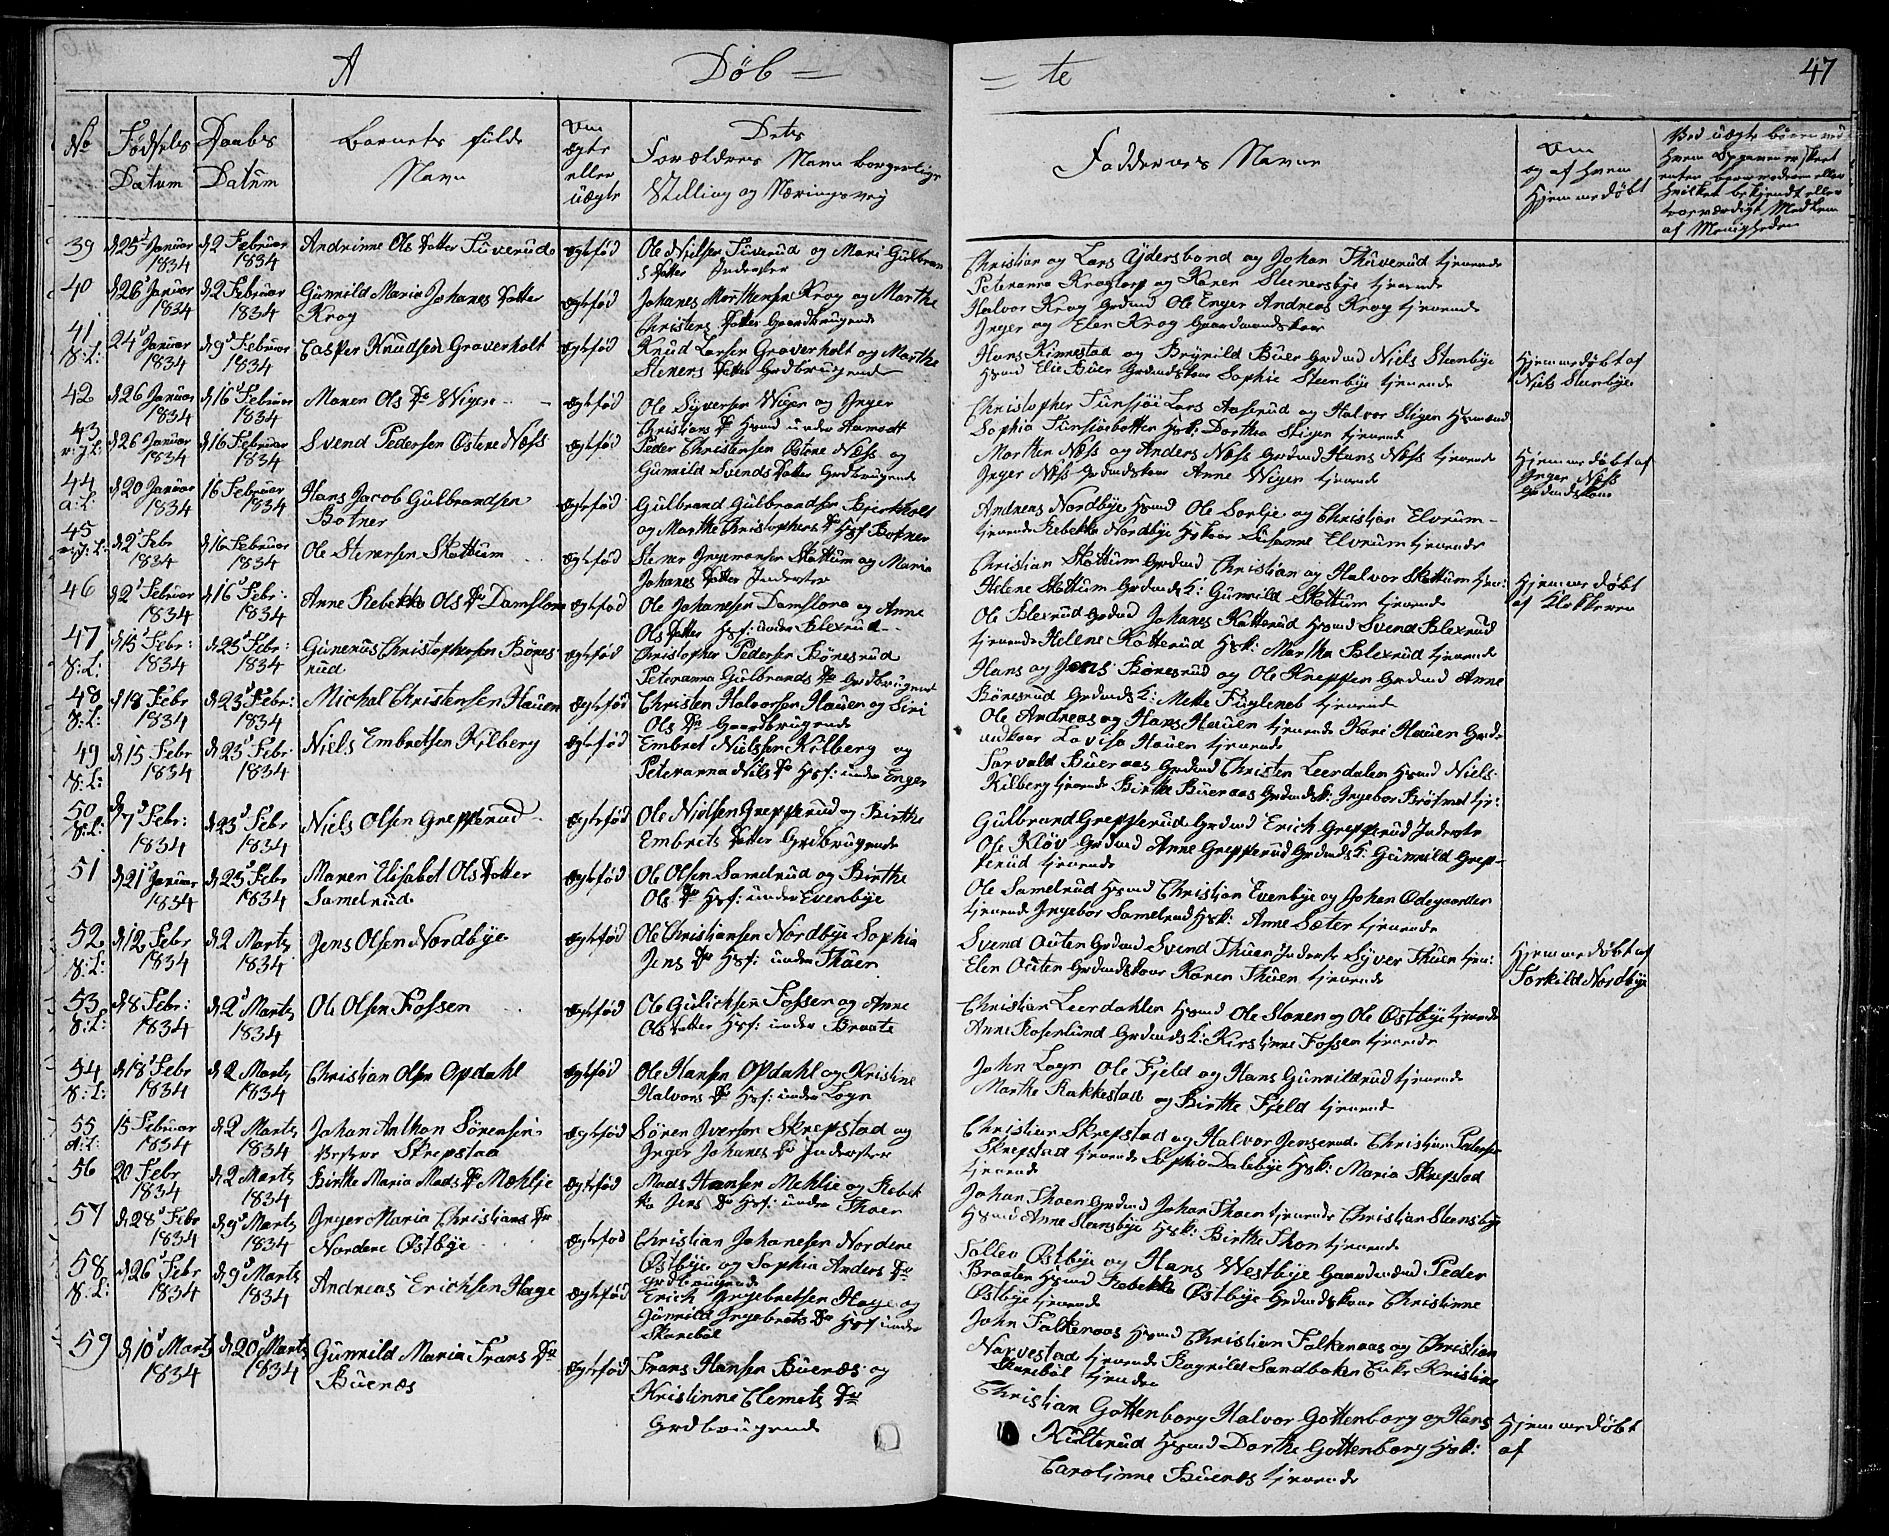 A Døb = = te 47
No
Fødsels Datum
Daabs Datum
Barnets fulde Navn
Om ægte eller uægte
Dets Forældres Navn borgerlige Stilling og Næringsvei
Faddernes Navne
Om og af hvem Hjemmedøbt
39 d 25 Januar 1834 d 2 Februar 1834 Andrinne Ols Datter Tuverud ægtefød Ole Nielsen Tuverud og Mari Gulbrans Datter Inderster
Christian og Lars Ydersbond og Johan Thuverud tjenende
Peteranna Krogtorp og Karen Steenersbye tjenende
40 d 26 Januar 1834 d 2 Februar 1834 Gunnild Maria Johanes Datter Krog ægtefød Johanes Morthensen Krog og Marthe Christens Datter Gaardbrugende
Halvor Krog Grdmd Ole Enger Andreas Krog tjenende
Inger og Elen Krog Gaardmandskoner
41 N:L: 24 Januar 1834 d 9 Februar 1834 Casper Knudsen Graverholt ægtefød Knud Larsen Graverholt og Marthe Steners Datter Grdbrugende
Hans Kinnestad og Brynild Buer Grdmd Niels Steenbye
Hsmd Elie Buer Grdmdskone Sophie Steenbye tjenende
Hjemmedøbt af Niels Steenbye
42 d 26 Januar 1834 d 16 Februar 1834 Maren Ols Dr Wigen ægtefød Ole Syversen Wigen og Inger Christians Dr Hsmd under Aamodt
Christopher Tunsjøi Lars Aaserud og Halvor Stigen Hsmænd
Sophia Tunsiøebotten Hsk: Dorthea Stigen tjenende
43 d 26 Januar 1834 d 16 Februar 1834 Svend Pedersen Østene Næss ægtefød Peder Christensen Østene Næss og Gunnild Svends Datter Grdbrugende
Morthen Næss og Anders Næss Grdmd Hans Næss tjenende
Inger Næss Grdmdskone Anne Wigen tjenende
Hjemmedøbt af Inger Næss Grdmdskone
44 a:L: d 20 Januar 1834 16 Februar 1834 Hans Jacob Gulbrandsen Botner ægtefød Gulbrand Gulbrandsen Bjerkholt og Marthe Christophers Dr Hsf Botner
Andreas Nordbye Hsmd Ole Sorlje og Christian Elvrum
tjenende Rebekka Nordbye Hskone Susanne Elvrum tjenende
45 d 2 Febr 1834 d 16 Februar 1834 Ole Stenersen Skottum ægtefød Stener Ingemansen Skottum og Maria Johanes Datter Inderster
Christian Skottum Grdmd Christian og Halvor Skottum tjen:
Helene Skottum Grdmdsk: Gunnild Skottum tjenende
Hjemmedøbt af Klokkeren
46 d 2 Februar 1834 d 16 Febr: 1834 Anne Rebekka Ols Dr Damslora ægtefød Ole Johanesen Damslora og Anne Ols Datter Hsf: under Blexrud
Ole Blexrud Grdmd Johanes Kotterud Hsmd Svend Blexrud
tjenende Helene Kotterud Hsk: Marthe Blexrud tjenende
47 N:L: d 15 Febr: 1834 d 23 Febr: 1834 Gunerius Christophersen Bønesrud ægtefød Christopher Pedersen Bønesrud Peteranna Gulbrands Dr Grdbrugende
Hans og Jens Bønesrud og Ole Knepper Grdmd Anne
Bønesrud Grdmdsk: Mette Fugleneb tjenende
48 N:L: d 18 Febr 1834 d 23 Febr: 1834 Michal Christensen Hauen ægtefød Christen Halvorsen Hauen og Siri Ols Dr Gaardbrugende
Ole Andreas og Hans Hauen tjenende Kari Hauen Grdmdskone Lovise Hauen tjenende
49 N:L: d 15 Febr 1834 d 23 Febr 1834 Niels Embretsen Kilberg ægtefød Embret Nielsen Kilberg og Peteranna Niels Dr Hsf: under Enger
Torvald Bueraas Grdmd Christen Leerdalen Hsmd Niels
Kilberg tjenende Birthe Bueraas Grdmdsk: Ingebor Brøsmet tj:
50 N:L: d 7 Febr: 1834 d 23 Febr 1834 Niels Olsen Grepperud ægtefød Ole Nielsen Grepperud og Birthe Embrets Datter Grdbrugende
Gulbrand Grepperud Grdmd Erich Grepperud Inderste
Ole Kløv Grdmd Anne Grepperud Grdmdsk: Gunnild Grepperud tjenende
51 d 21 Januar 1834 d 23 Febr 1834 Maren Elisabet Ols Datter Samelrud ægtefød Ole Olsen Samelrud og Birthe Ols Dr Hsf: under Evenbye
Ole Samelrud Hsmd Christian Evenbye og Johan Ødegaarden
tjenende Ingebor Samelrud Hsk: Anne Sæter tjenende
52 N:L: d 12 Febr 1834 d 2 Marts 1834 Jens Olsen Nordbye ægtefød Ole Christiansen Nordbye Sophia Jens Dr Hsf: under Thuen
Svend Outen Grdmd Svend Thuen Inderste Syver Thuen tjen:
Elen Outen Grdmdskone Karen Thuen tjenende
Hjemmedøbt af Torkild Nordbye
53 N:L: d 8 Febr: 1834 d 2 Marts 1834 Ole Olsen Fossen ægtefød Ole Gulichsen Fossen og Anne Ols Datter Hsf: under Braate
Christian Leerdahlen Hsmd Ole Sloren og Ole Østbye tjenende
Anne Rosenlund Grdmdsk: Kirstinne Fossen tjenende
54 N:L: d 18 Febr 1834 d 2 Marts 1834 Christian Olsen Opdahl ægtefød Ole Hansen Opdahl og Kristine Halvors Dr Hsf: under Logn
John Logn Ole Fjeld og Hans Gunnildrud tjenende
Marthe Rakkestad og Birthe Fjeld tjenende
55 15 Februar 1834 d 2 Marts 1834 Johan Anthon Sørensen Skrepstad ægtefød Søren Iversen Skrepstad og Inger Johanes Dr Inderster
Christian Skrepstad og Halvor Jenserud Christian Pedersen
Skrepstad tjenende Sophia Dalebye Hsk: Maria Skrepstad tjenende
56 20 Febr 1834 d 2 Marts 1834 Birthe Maria Mads Dr Mæhlje ægtefød Mads Hansen Mehlie og Rebekka Jens Dr Hsf: under Thoen
Johan Thoen Grdmd Johan Thoen tjenende Christian Steensbye
Hsmd Anne Steensbye Hsk: Birthe Thon tjenende
57 d 28 Febr 1834 d 9 Marts 1834 Inger Maria Christians Dr Nordene Østbye ægtefød Christian Johanesen Nordene Østbye og Sophia Anders Dr Grdbrugende
Tollev Østbye og Hans Westbye Gaardmænd Peder
Braaten Hsmd Rebekke Østbye Grdmdskone Christinne Østbye tjenende
58 N:L: d 26 Febr 1834 d 9 Marts 1834 Andreas Erichsen Hage ægtefød Erich Ingebretsen Hage og Gunnild Ingebrets Dr Hsf under Skarebøl
John Falkenaas Hsmd Christian Falkenaas og Christian
Narvestad tjenende Ragnild Sandbaken Enke Kristine Skarebøl tjenende
59 d 10 Marts 1834 d 20 Marts 1834 Gunnild Maria Frans Dr Buenæs ægtefød Frans Hansen Buenæs og Kristinne Clemets Dr Grdbrugende
Christian Gottenborg Halvor Gottenborg og Hans
Kulterud Hsmd Dorthe Gottenborg Hsk:
Carolinne Buenæs tjenende
Hjemmedøbt af